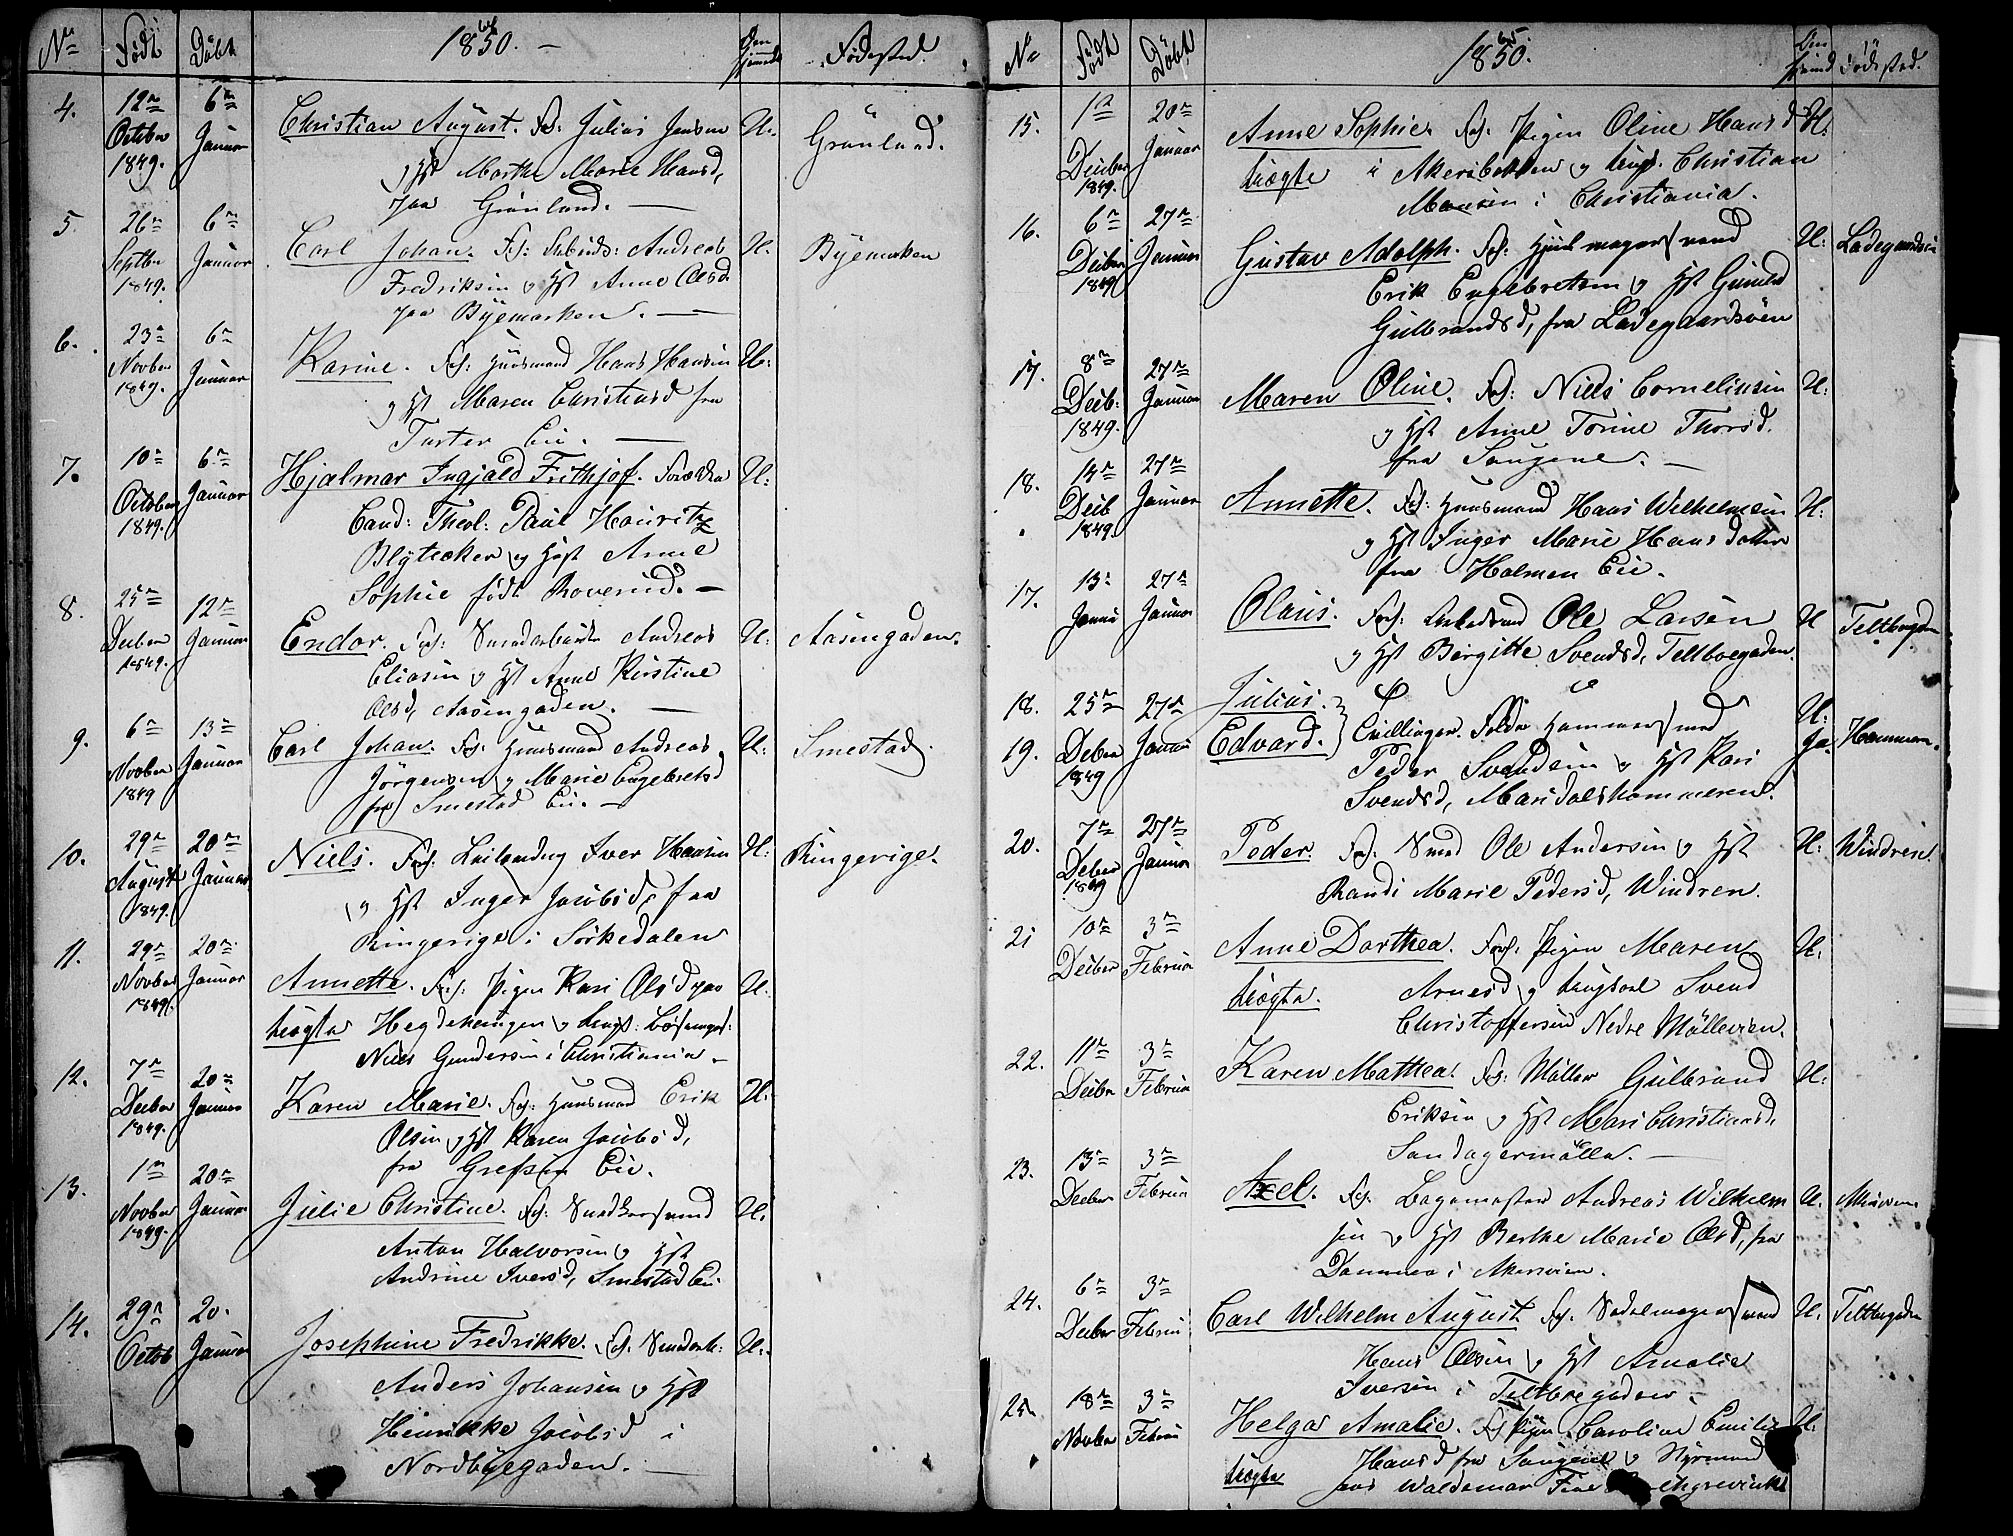 No
Født
Döbt
1850. —
64
Den hjemmed:
Fødested.
4.
12te October 1849.
6te Januar
Christian August. For. Julius Jensen
og Hst Marthe Marie Hansd,
paa Grønland. —
U.
Grönland.
5.
26te Septbr 1849.
6te Januar
Carl Johan. For: Arbeids: Andreas
Fredriksen og Hst Anne Olsd.
paa Byemarken. —
U.
Byemarken
6.
23de Novber 1849.
6te Januar
Karine. For: Huusmand Hans Hansen
og Hst Maren Christiansd fra
Taster Eie. —
U:
7.
10de October 1849.
6te Januar
Hjalmar Ingjald Frithjof. Forældre
Cand: Theol: Paul Houritz
Blytecker og Hst Anne
Sophie født Roverud. —
U:
8.
25de Decber 1849.
12te Januar
Endor. For: Snedkerbursk Andreas
Eliasen og Hst Anne Kirstine
Olsd, Aasengaden. —
U:
Aasengaden.
9.
6te Novber 1849
13de Januar
Carl Johan. For. Huusmand Andreas
Jörgensen og Marie Engebretsd
fra Smestad Eie. —
U:
Smestad.
10.
29de August 1849.
20de Januar
Niels. For. Leilending Iver Hansen
og Hst Inger Jacobsd, fra
Ringerige i Sörkedalen
U:
Ringerige.
11.
29de Novber 1849.
20de Januar
Annette. For: Pigen Kari Olsd paa
uægte Hegdehaugen og Ungk:
Niels Gundersen i Christiania —
U.
12.
7de Decber 1849.
20de Januar
Karen Marie. For: Huusmand Erik
Olsen og Hst Karen Jacobsd,
fra Grefsen Eie.
U.
13.
1ste Novber 1849.
20de Januar
Julie Christine. For: Snedkersvend
Anton Halvorsen og Hst
Andrine Iversd, Smestad Eie.
U.
14.
29de Octob
20. Januar
Josephine Fredrikke. For.
Anders Johansen og Hst
Henrikke Jacobsd i
Nordbyegaden. —
U.
No
Født
Döbt
1850.
65
Den hjemmed
Fødested.
15.
1ste Decber 1849.
20de Januar
Anne Sophie. For. Pigen Oline Hansd
uægte i Akersbakken og Ungk. Christian
Mansen i Christiania.
U.
16.
6te Decber 1849
27de Januar
Gustav Adolph. For. Hjulmagersvend
Erik Engebretsen og Hst Gunild
Gulbrandsd, fra Ladegaardsöen
U:
Ladegaardsöen
17.
8de Decb: 1849.
27de Januar
Maren Oline. For: Niels Corneliusen
og Hst Anne Torine Thorsd.
fra Saugene. —
U:
18.
14de Decb 1849.
27de Januar
Annette. For: Huusmand Hans Wilhelmsen
og Hst Inger Marie Hansdatter
fra Holmen Eie.
U:
17.
13de Janu
27de Januar
Olaus. For: Arbeidsmd Ole Larsen
og Hst Birgitte Svendsd, Teltboegaden.
U
Teltboegaden
18.
19.
25de Decber 1849
27de Januar
Julius.
Edvard.
Tvillinger. Foldr Hammersmed
Peder Svendsen og Hst Kari
Svendsd, Maridalshammeren.
U:
Ja.
Hammeren.
20.
7de Decber 1849
27de Januar
Peder. For. Smed Ole Andersen og Hst
Randi Marie Pedersd, Windren.
U.
Windren.
21
10de Decber
3de Februar
Anne Dorthea. For: Pigen Maren
uægte. Arnesd og Ungkarl Svend
Christoffersen Nedre Möllevien.
U.
22.
11te Decbr
3de Februar
Karen Mathea. For: Möller Gulbrand
Eriksen og Hst Mari Christiansd,
Sandagermölla. —
U:
23.
13de Decber
3de Februar
Axel. For. Bagemester Andreas Wilhelm
sen og Hst Berthe Marie Olsd, fra
Dammen i Akersvien.
U.
24.
6te Decber
3de Februar
Carl Wilhelm August. For. Sadelmagersvend
Hans Olsen og Hst Amalie
Iversen i Teltboegaden —
U.
Teltboegaden
25.
18de Novber
3de Februar
Helga Amalie. For. Pigen Caroline Emilie
uægte Hansd fra Saugene og Styrmand
Waldemar
U: